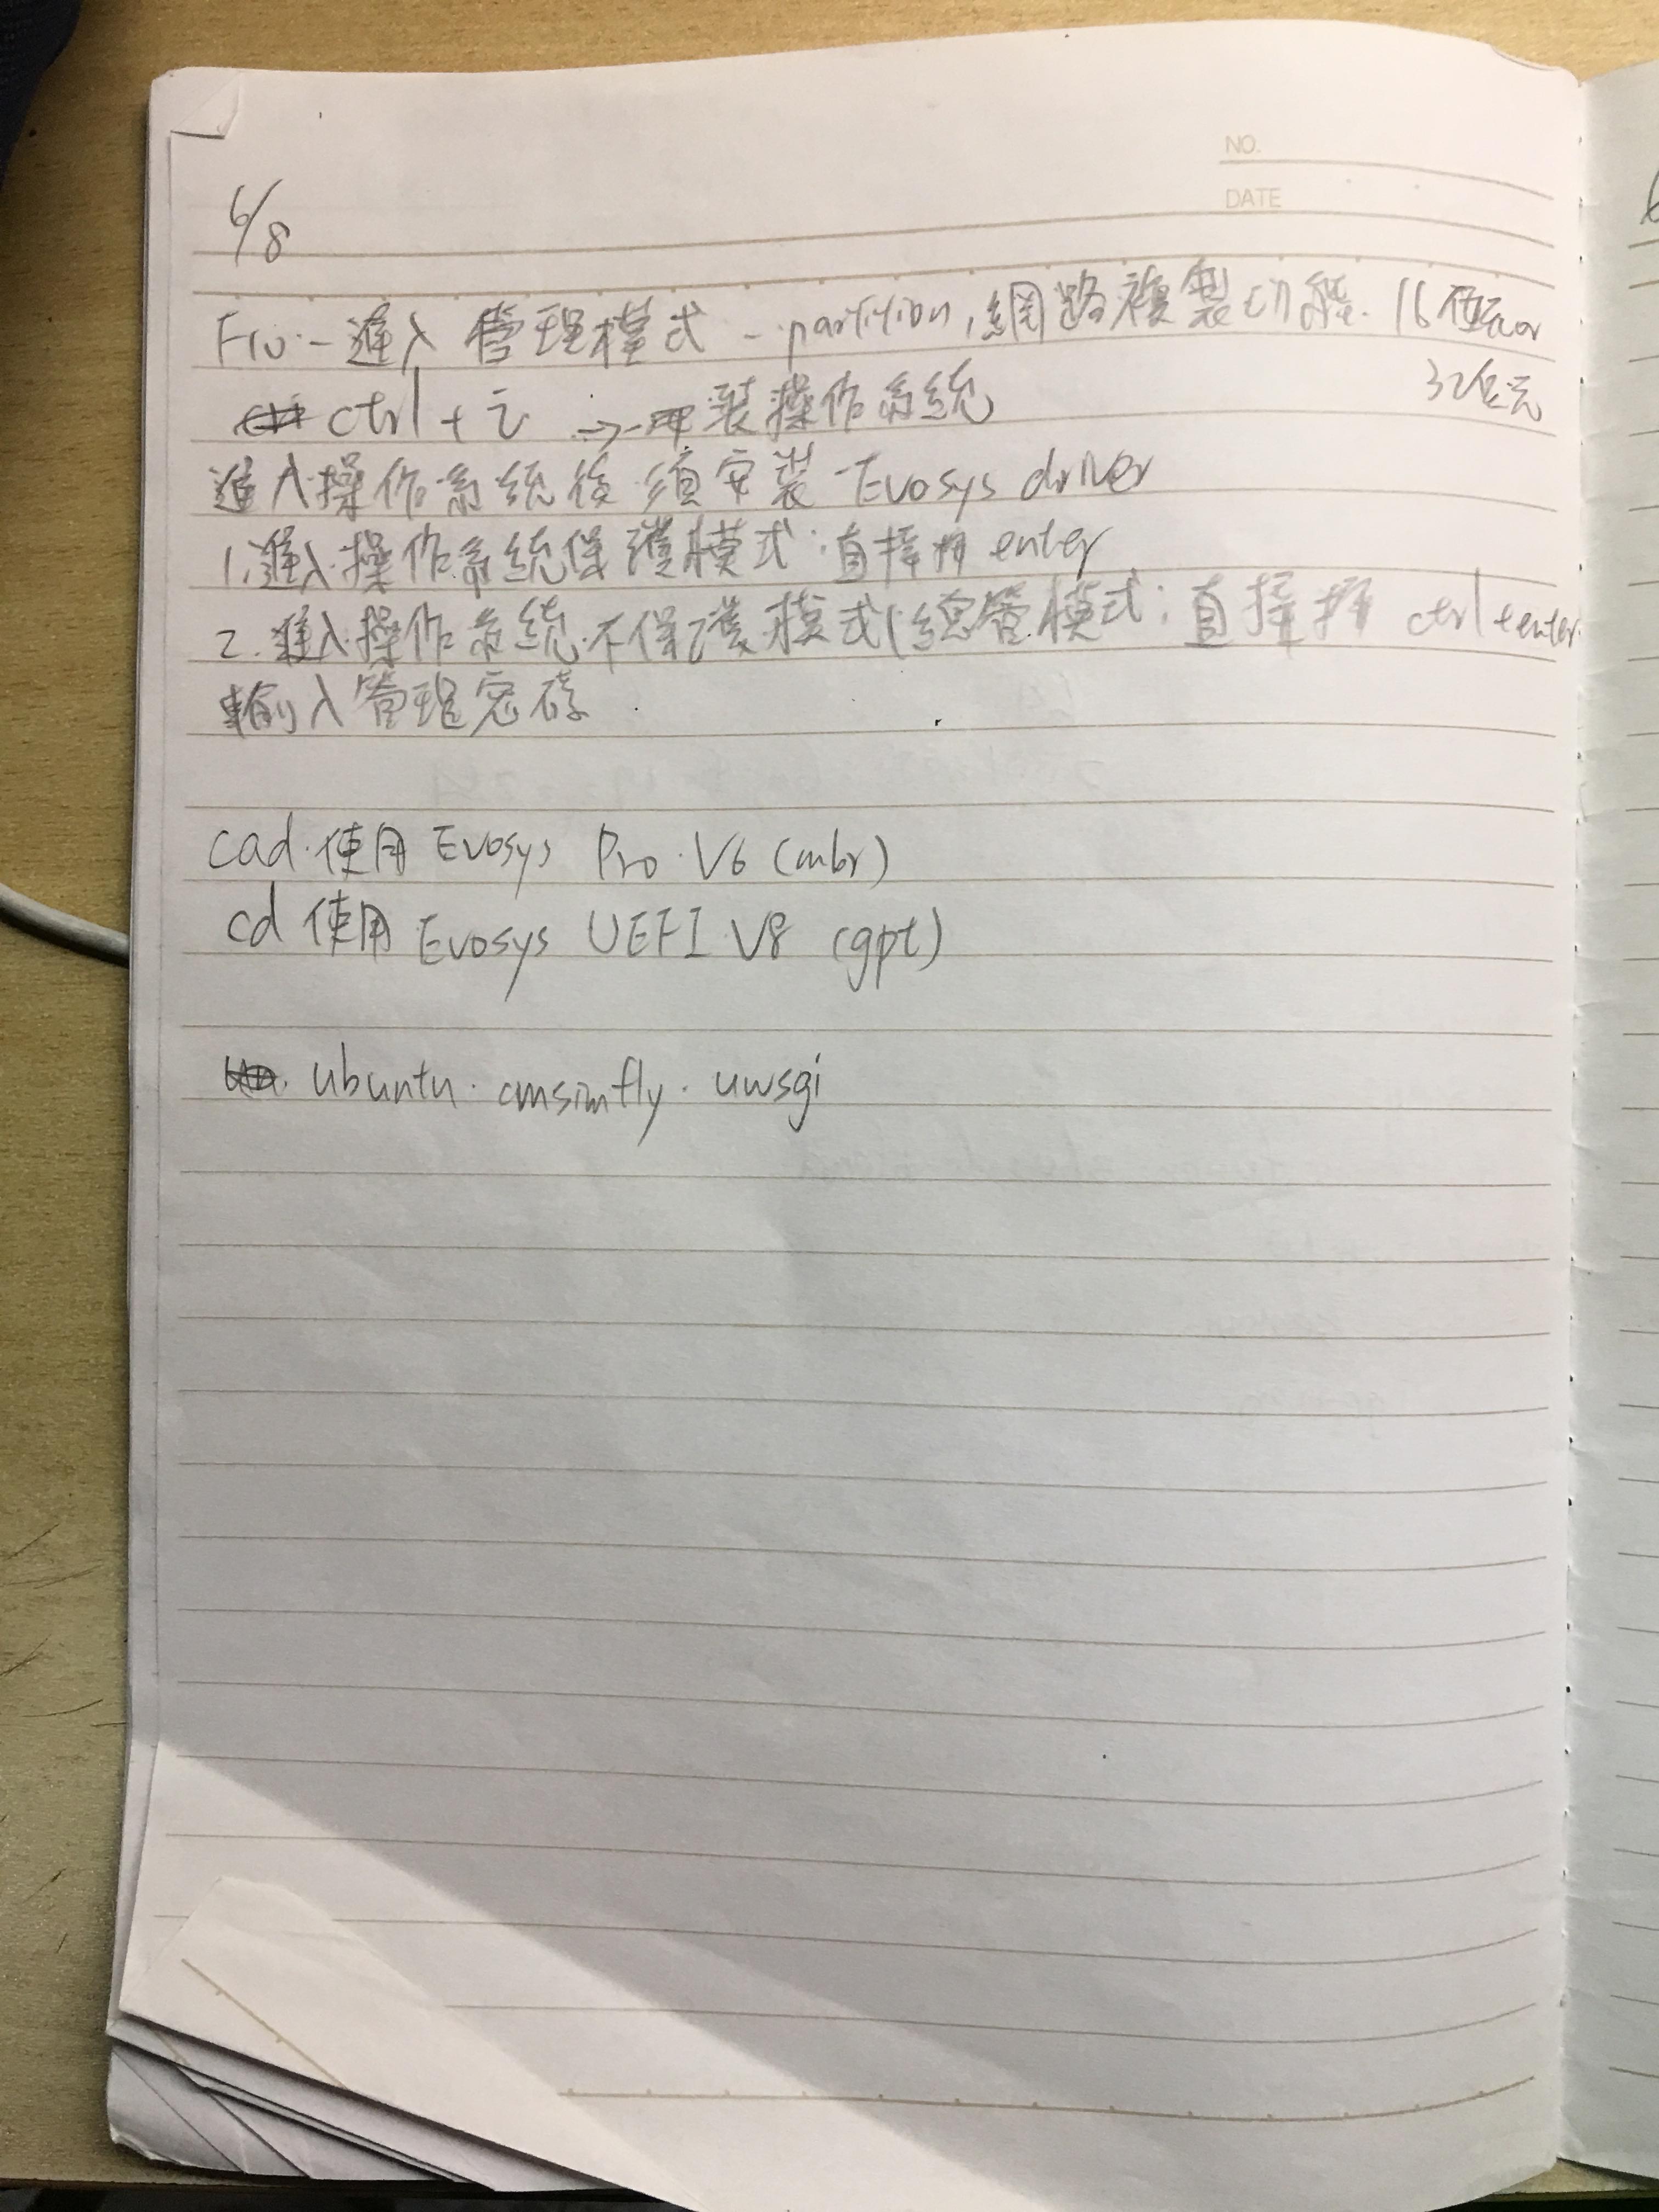 NO.
DATE
6/8
F10 - 進入管理模式 - partition, 網路複製功能. 16位元or
32位元
ctrl + i → 裝操作系統
進入操作系統後須安裝 Evosys driver
1. 進入操作系統保護模式: 直接按 enter
2. 進入操作系統不保護模式(總管模式: 直接按 ctrl + enter.
輸入管理密碼
cad 使用 Evosys Pro V6 (mbr)
cd 使用 Evosys UEFI V8 (gpt)
ubuntu. cmsimfly. uwsgi